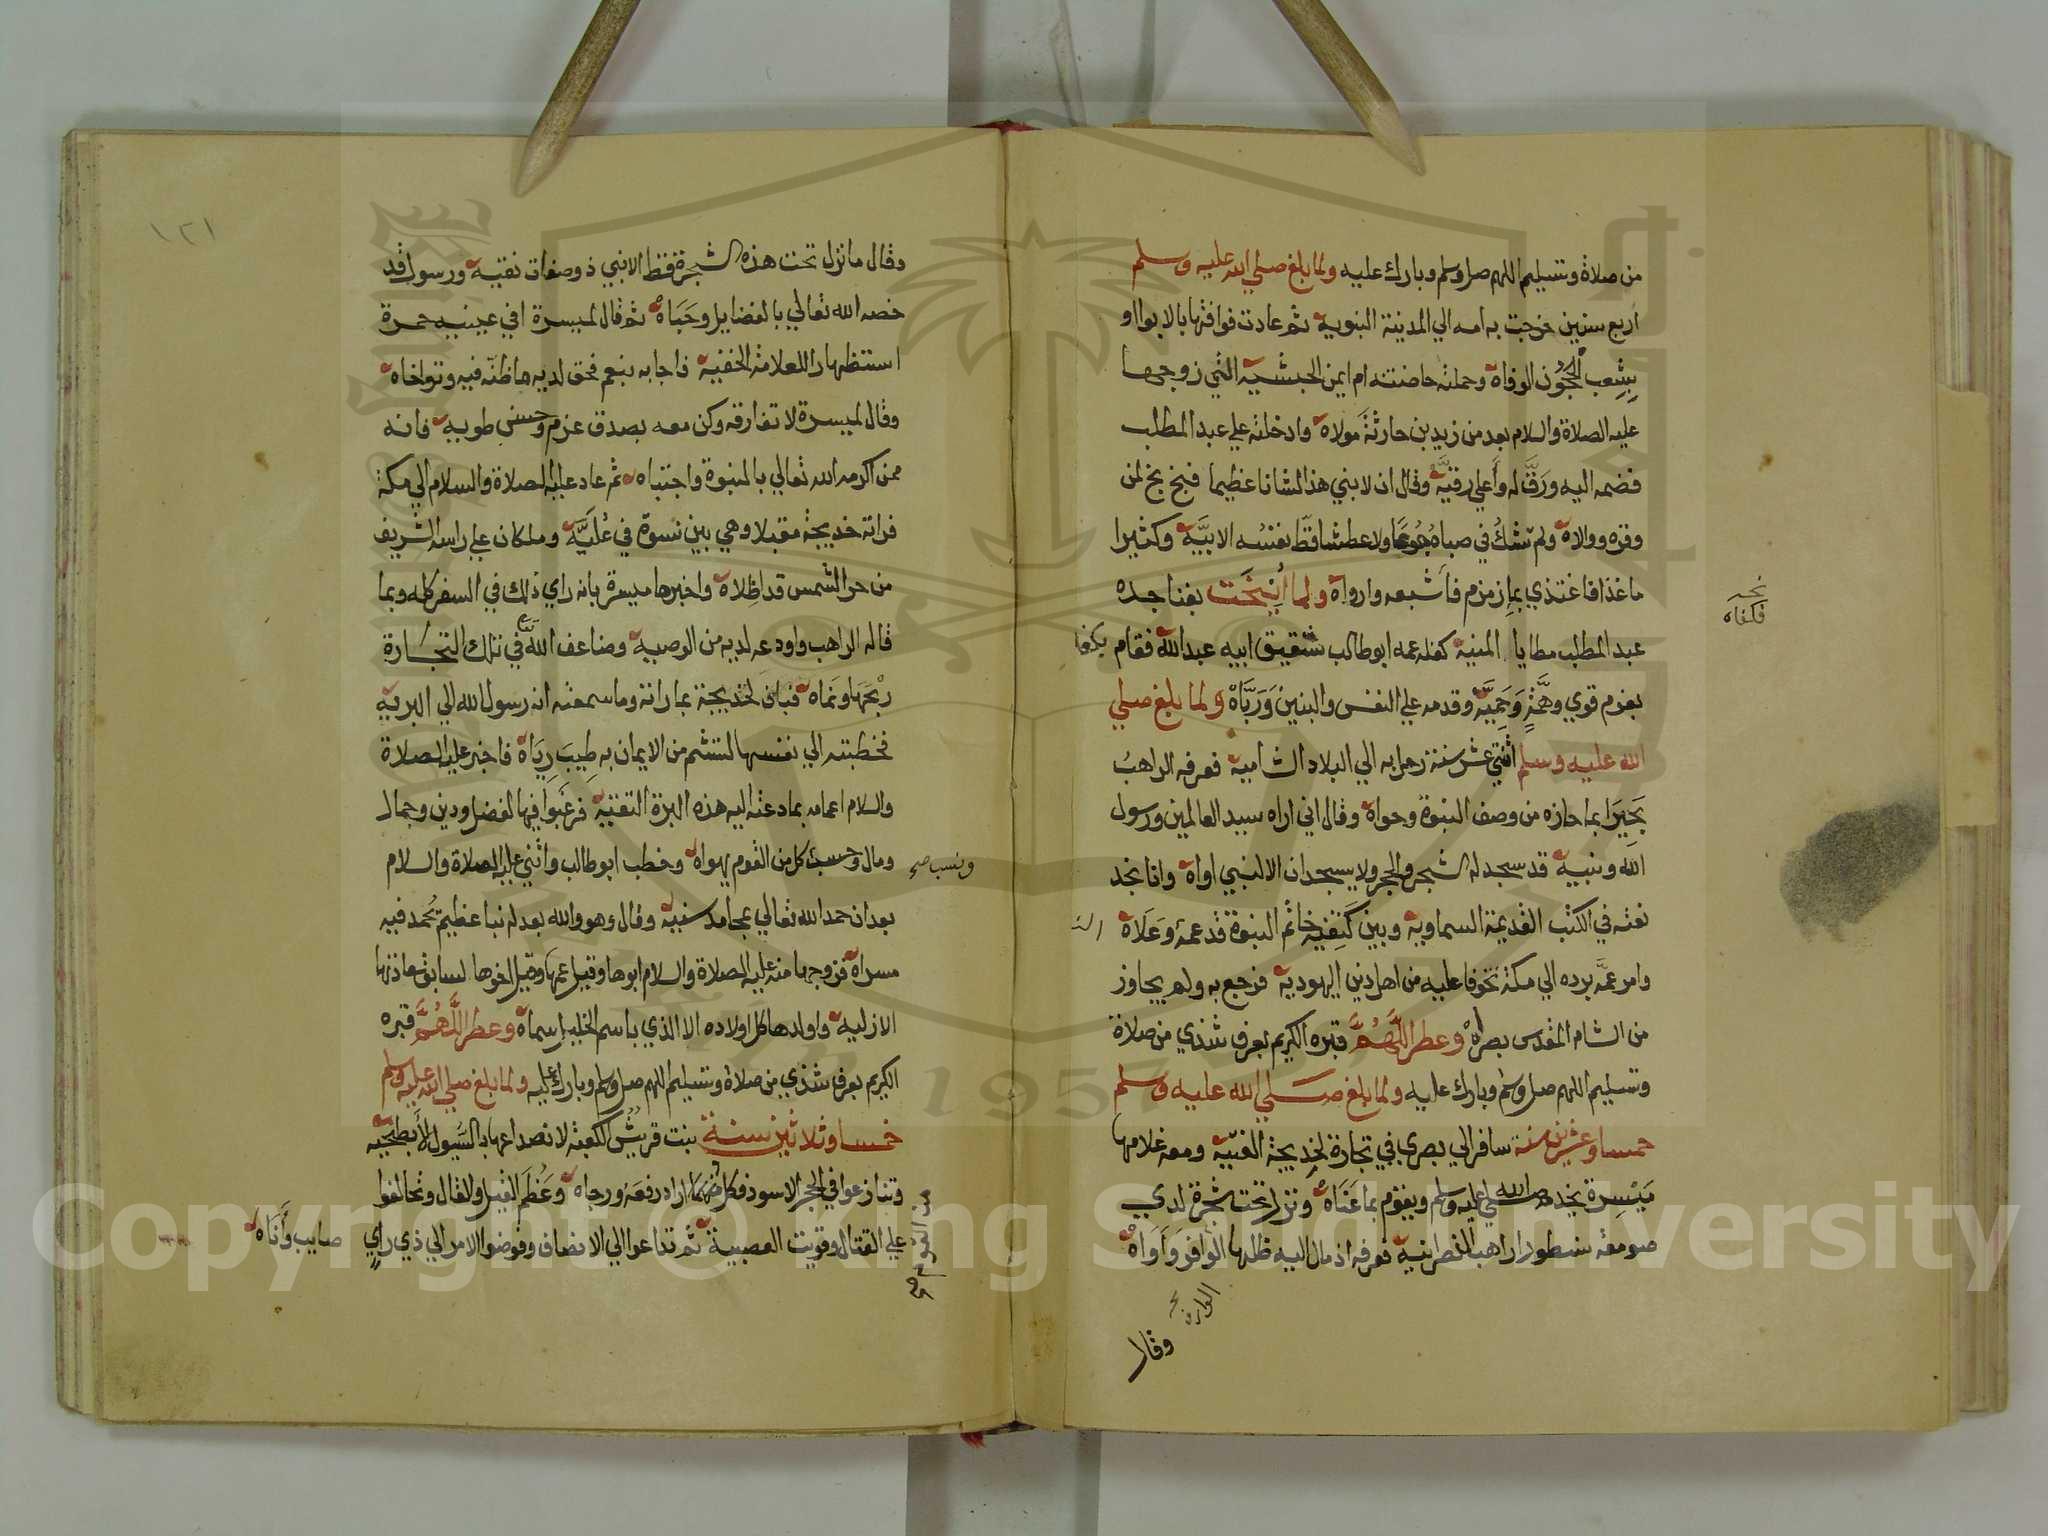 من صلاة وتسليم اللهم صل وسلم وبارك عليه ولما بلغ صلي الله عليه وسلم
اربع سنين خرجت به امه الي المدينة النبوية ثم عادت فوافتها بالابوا او
بِشِعب الحَجُون الوفاة وحملته حاضنته ام ايمن الحبشية التي زوجها
عليه الصلاة والسلام بعد من زيد بن حارثة مولاه وادخلته علي عبد المطلب
فضمه اليه ورَقَّ له وأعلي رقيّه وقال ان لابني هذا لشانا عظيما فبخ بخ لمن
وقره ووالاه ولم تشكُ في صباه جُوعًا ولا عطشا قط نفسُه الابيَّة وكثيرا
ما غذا فاغتذي بماء زمزم فأشبعه وارواه ولما أُنيخَت بفنا جده
عبد المطلب مطايا المنية كفله عمه ابو طالب شقيق ابيه عبد الله فقام
بعزم قوي وهَّمةٍ وَحَمِيَّة وقدمه علي النفس والبنين وَرَبَّاهْ ولما بلغ صلي
الله عليه وسلم اثنتي عشر سنة رحل به الي البلاد الشامية فعرفه الراهبُ
بَحِيرَا بما حازه من وصف النبوة وحواه وقال اني اراه سيد العالمين ورسول
الله ونبيه قد سجد له الشجر والحجر ولا يسجدان الا لنبي اواه وانا نجد
نعته في الكتب القديمة السماوية وبين كَتِفَيه خاتم النبوة قد عمه وَعَلَاه
وامر عمَّه برده الي مكة تخوفا عليه من اهل دين اليهودية فرجع به ولم يجاوز
من الشام المقدس بصراهْ وعطر اللَّهُمَّ قبره الكريم بعرف شذي من صلاة
وتسليم اللهم صل وسلم وبارك عليه ولما بلغ صلي الله عليه وسلم
خمسا وعشرين سنة سافر الي بصري في تجارة لخديجة الفتيّة ومعه غلامها
مَيْسِرة يخدمه صلي الله عليه وسلم ويقوم بما عَنَاهْ ونزل تحت شجرة لدي
صومعة نسطورا راهب النصرانية فعرفه اذ مال اليه ظلها الوافر وَأَوَاهْ
وقال
نخه
فكفاه
وقال ما نزل تحت هذه الشجرة قط الا نبي ذو صفات نقية ورسول قد
خصه الله تعالي بالفضايل وحَبَاهْ ثم قال لميسرة افي عينيه حمرة
استظهارا للعلامة الخفية فاجابه بنعم فحق لديه ما ظنّه فيه وتوخاه
وقال لميسرة لا تفارقه وكن معه بصدق عزم وحسن طويه فانه
ممن اكرمه الله تعالي بالنبوة واجتباه ثم عاد عليه الصلاة والسلام الي مكة
فراته خديجة مقبلا وهي بين نسوة في عُليَّة وملكان علي راسه الشريف
من حر الشمس قد اظلاه واخبرها ميسرة بانه راي ذلك في السفر كله وبما
قاله الراهب واودعه لديه من الوصية وضاعف الله في تلك التجارة
رِبْحَها ونَماه فبان لخديجة بما راته وما سمعته انه رسول الله الي البريه
فخطبته الي نفسها لتشم من الايمان به طِيبَ رِيَاه فاخبر عليه الصلاة
والسلام اعمامه بما دعته اليه هذه البرة التقية فرغبوا فيها لفضل ودين وجمال
ومال وحسب كل من القوم يهواه وخطب ابو طالب واثني عليه الصلاة والسلام
ونسب صح
بعد ان حمد الله تعالي بمحامد سنية وقال وهو والله بعد له نبا عظيم تُحمد فيه
مسراه فزوجها منه عليه الصلاة والسلام ابوها وقيل عمها وقيل اخوها لسابق سعادتها
الازلية واولدها كل اولاده الا الذي باسم الخليل سماه وعطر اللَّهُمَّ قبره
الكريم بعرف شذي من صلاة وتسليم اللهم صل وسلم وبارك عليه ولما بلغ صلي الله عليه وسلم
خمسا وثلاثين سنة بنت قريش الكعبة لانصداعها بالسيول الأبطحيّه
وتنازعوا في الحجر الاسود فكل منهما اراد رفعَهُ ورجاه وعَظُم القيل والقال وتحالفوا
علي القتال وقويت العصبية ثم تداعوا الي الانصاف وفوضوا الامر الي ذي رايٍ
صايب وأَنَاه
من القوم صح
١٢١
Copyright © King Saud University
1957